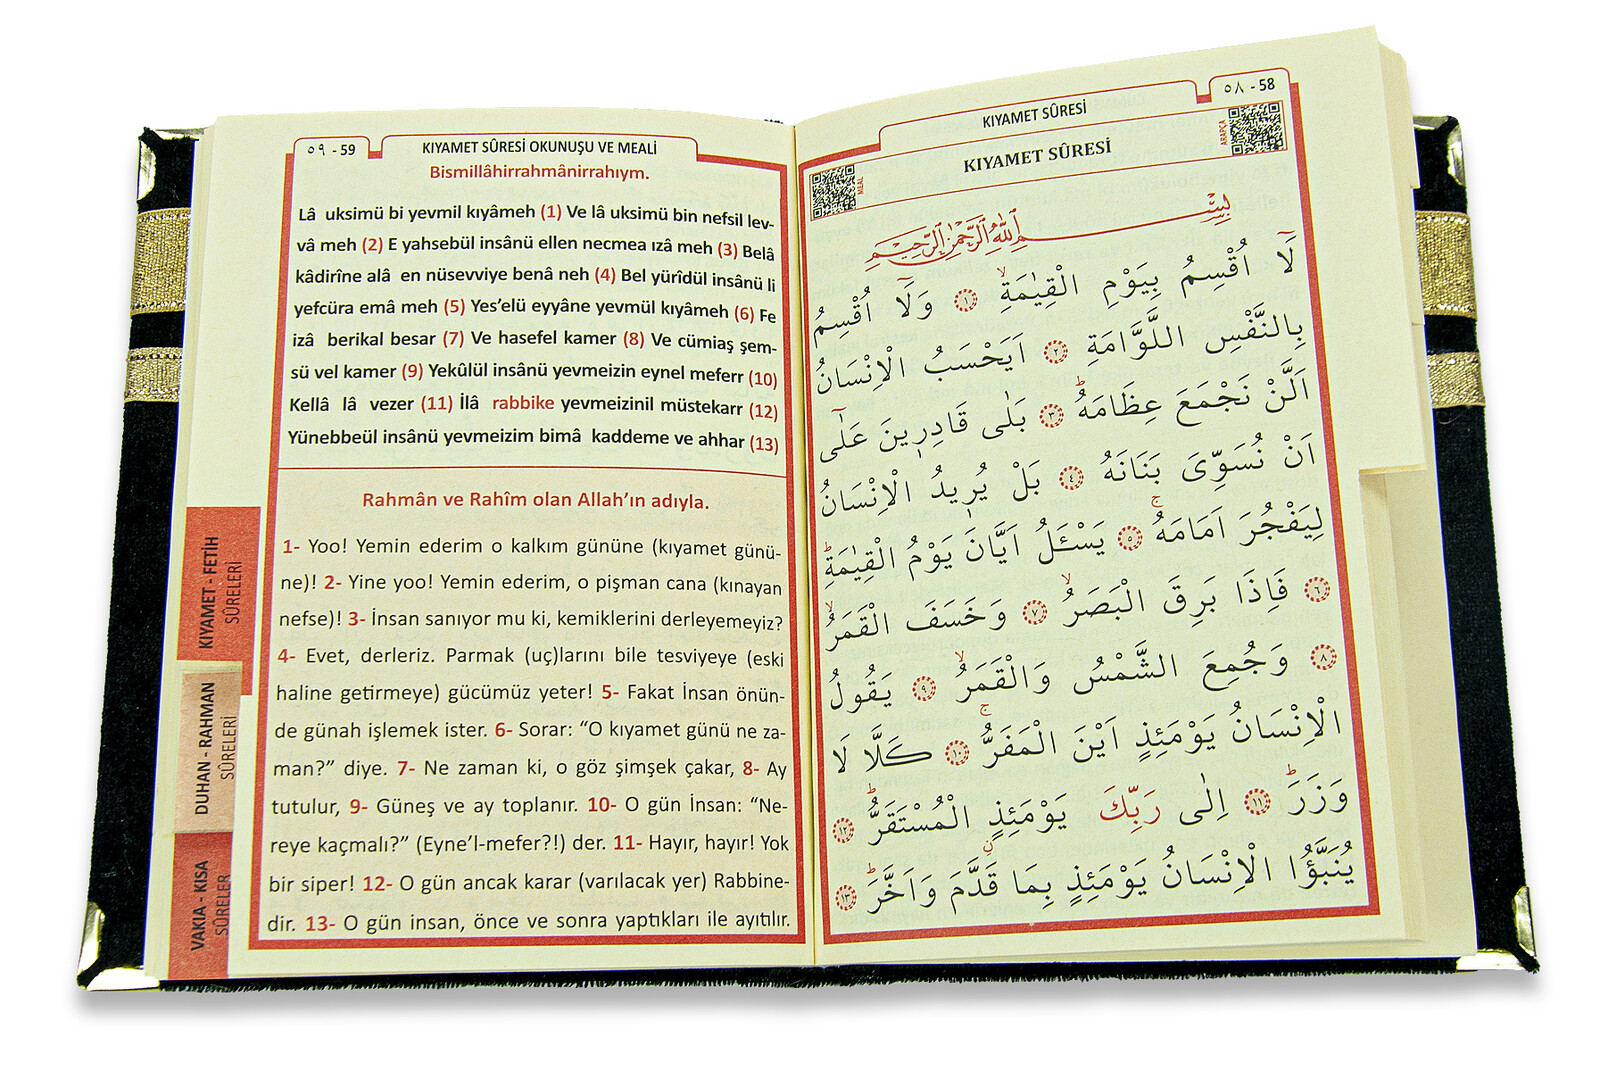 ٥٨ - 58
KIYAMET SÛRESİ
ARAPÇA
KIYAMET SÛRESİ
MEAL
بِسْمِ اللّٰهِ الرَّحْمٰنِ الرَّحِيمِ
لَٓا اُقْسِمُ بِيَوْمِ الْقِيٰمَةِۙ ﴿١﴾ وَلَٓا اُقْسِمُ
بِالنَّفْسِ اللَّوَّامَةِ ﴿٢﴾ اَيَحْسَبُ الْاِنْسَانُ
اَلَّنْ نَجْمَعَ عِظَامَهُۜ ﴿٣﴾ بَلٰى قَادِر۪ينَ عَلٰٓى
اَنْ نُسَوِّىَ بَنَانَهُ ﴿٤﴾ بَلْ يُر۪يدُ الْاِنْسَانُ
لِيَفْجُرَ اَمَامَهُۚ ﴿٥﴾ يَسْـَٔلُ اَيَّانَ يَوْمُ الْقِيٰمَةِۜ
﴿٦﴾ فَاِذَا بَرِقَ الْبَصَرُۙ ﴿٧﴾ وَخَسَفَ الْقَمَرُۙ
﴿٨﴾ وَجُمِعَ الشَّمْسُ وَالْقَمَرُۙ ﴿٩﴾ يَقُولُ
الْاِنْسَانُ يَوْمَئِذٍ اَيْنَ الْمَفَرُّۚ ﴿١٠﴾ كَلَّا لَا
وَزَرَۜ ﴿١١﴾ اِلٰى رَبِّكَ يَوْمَئِذٍ الْمُسْتَقَرُّۜ ﴿١٢﴾
يُنَبَّؤُا الْاِنْسَانُ يَوْمَئِذٍ بِمَا قَدَّمَ وَاَخَّرَۜ ﴿١٣﴾
٥٩ - 59
KIYAMET SÛRESİ OKUNUŞU VE MEALİ
Bismillâhirrahmânirrahıym.
Lâ uksimü bi yevmil kıyâmeh (1) Ve lâ uksimü bin nefsil lev-
vâ meh (2) E yahsebül insânü ellen necmea ızâ meh (3) Belâ
kâdirîne alâ en nüsevviye benâ neh (4) Bel yürîdül insânü li
yefcüra emâ meh (5) Yes’elü eyyâne yevmül kıyâmeh (6) Fe
izâ berikal besar (7) Ve hasefel kamer (8) Ve cümiaş şem-
sü vel kamer (9) Yekûlül insânü yevmeizin eynel meferr (10)
Kellâ lâ vezer (11) İlâ rabbike yevmeizinil müstekarr (12)
Yünebbeül insânü yevmeizim bimâ kaddeme ve ahhar (13)
Rahmân ve Rahîm olan Allah’ın adıyla.
1- Yoo! Yemin ederim o kalkım gününe (kıyamet günü-
ne)! 2- Yine yoo! Yemin ederim, o pişman cana (kınayan
nefse)! 3- İnsan sanıyor mu ki, kemiklerini derleyemeyiz?
4- Evet, derleriz. Parmak (uç)larını bile tesviyeye (eski
haline getirmeye) gücümüz yeter! 5- Fakat İnsan önün-
de günah işlemek ister. 6- Sorar: “O kıyamet günü ne za-
man?” diye. 7- Ne zaman ki, o göz şimşek çakar, 8- Ay
tutulur, 9- Güneş ve ay toplanır. 10- O gün İnsan: “Ne-
reye kaçmalı?” (Eyne’l-mefer?!) der. 11- Hayır, hayır! Yok
bir siper! 12- O gün ancak karar (varılacak yer) Rabbine-
dir. 13- O gün insan, önce ve sonra yaptıkları ile ayıtılır.
KIYAMET - FETİH
SÛRELERİ
DUHAN - RAHMAN
SÛRELERİ
VAKIA - KISA
SÛRELER